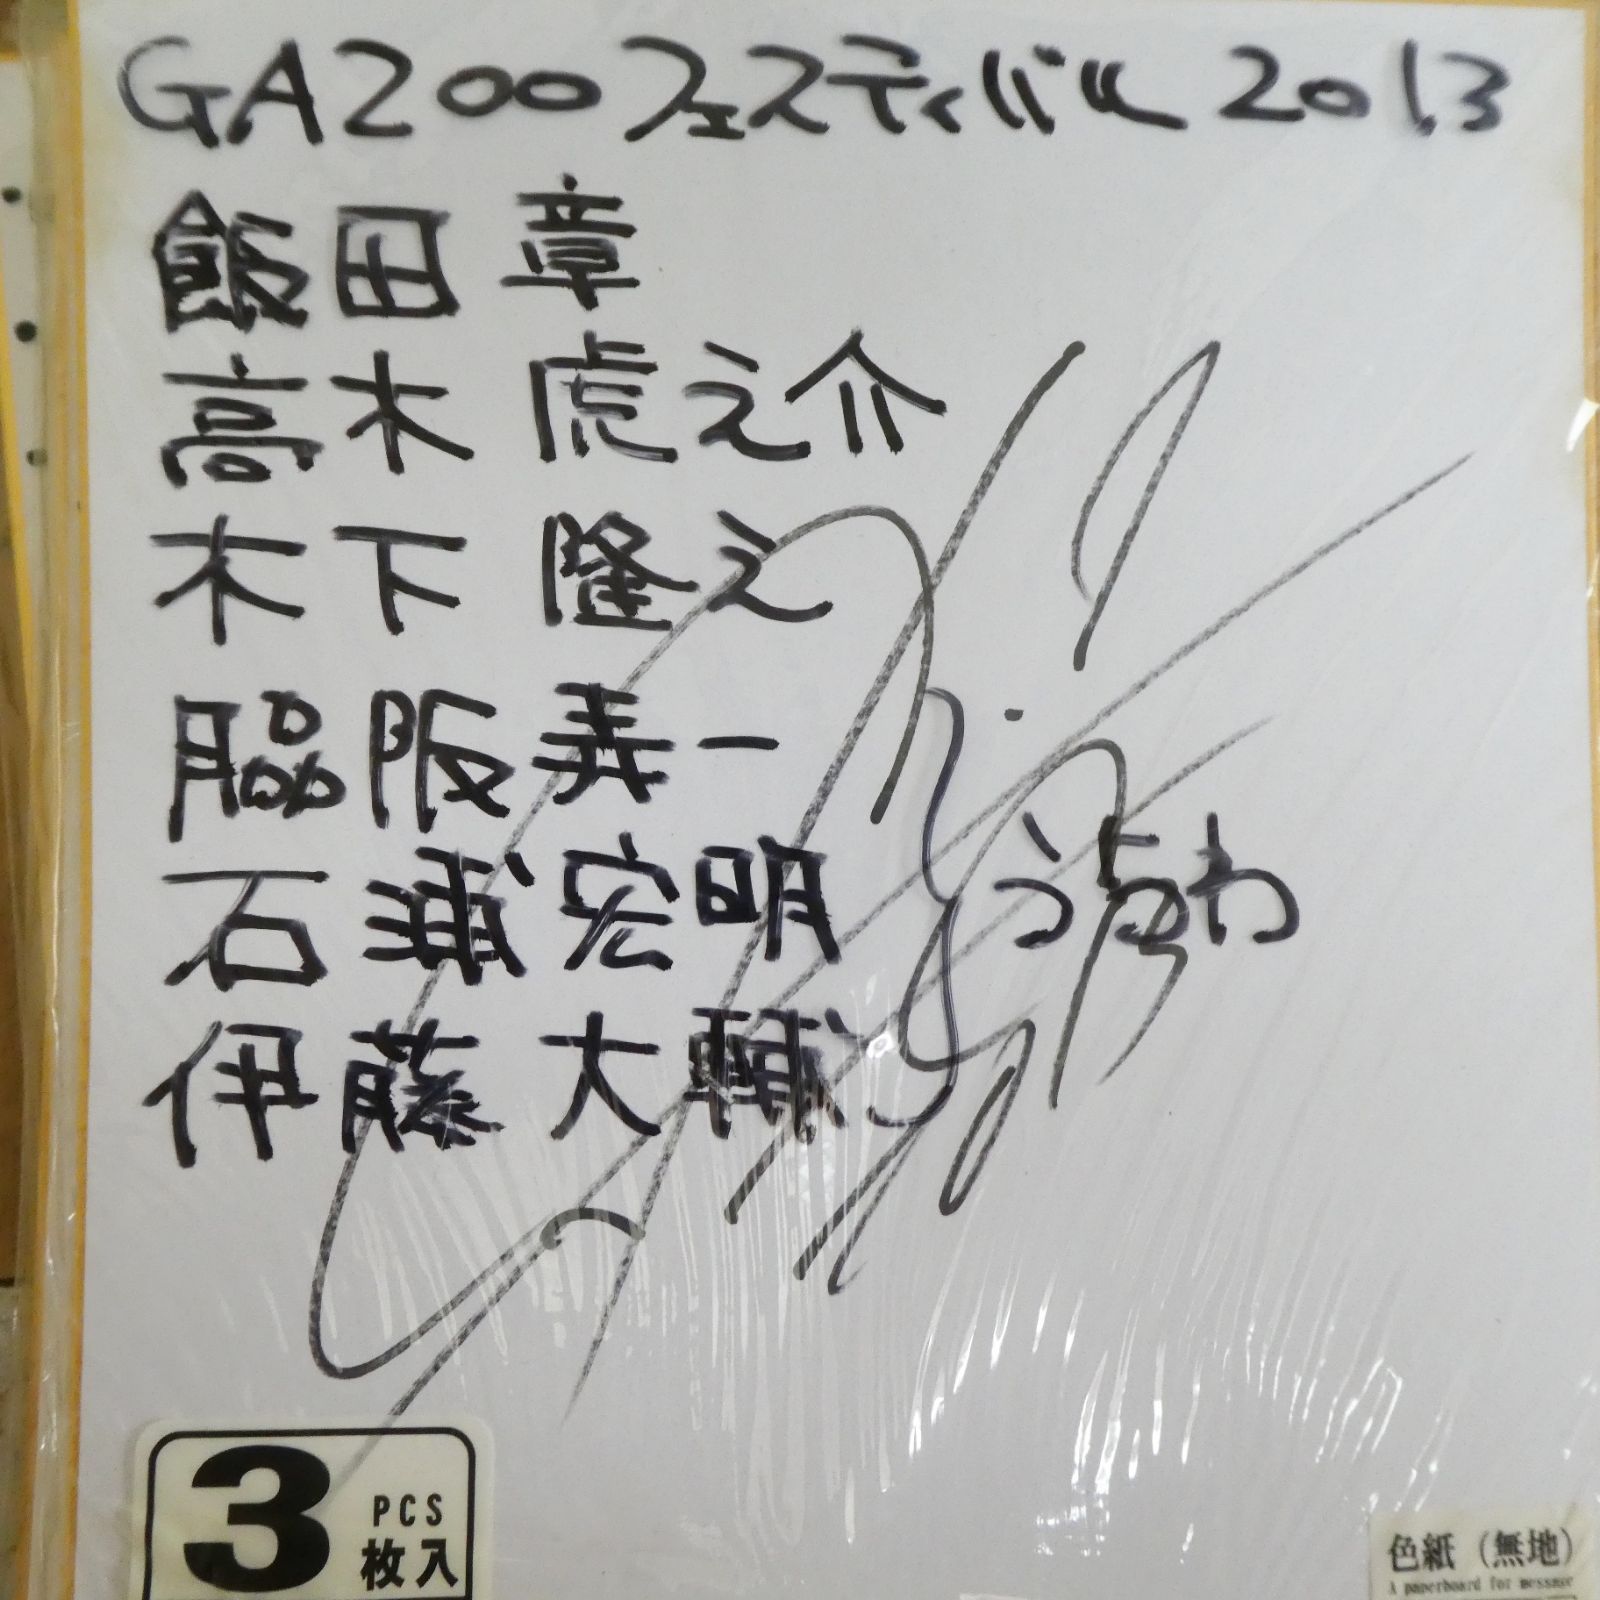 GAZOOフェスティバル 2013
飯田 章
高木 虎之介
木下 隆之
脇阪 寿一
石浦 宏明 うらわ
伊藤 大輔
3 PCS 枚入
色紙（無地）
A paperboard for message